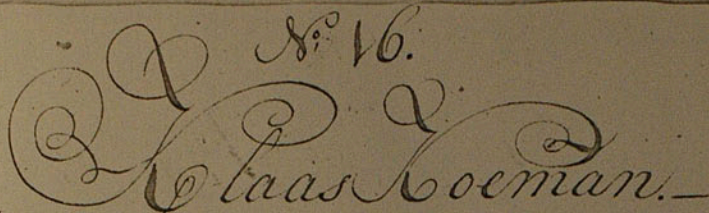 No: 16.
Klaas Koeman.